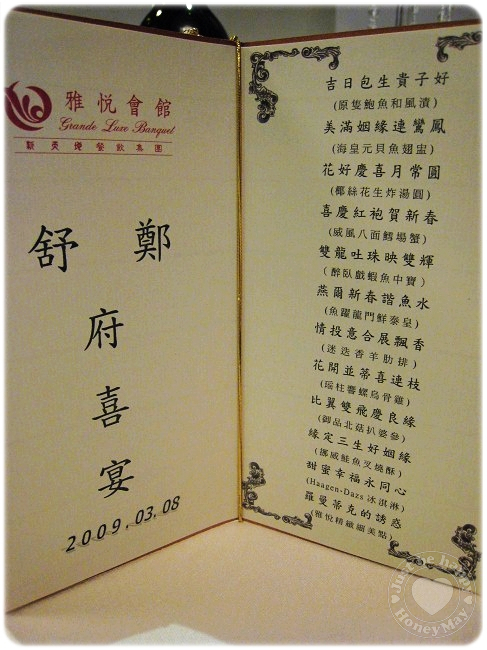 雅悅會館
Grande Luxe Banquet
鄭
舒
府
喜
宴
2009.03.08
吉日包生貴子好
(原隻鮑魚和風漬)
美滿姻緣連鸞鳳
(海皇元貝魚翅盅)
花好慶喜月常圓
(椰絲花生炸湯圓)
喜慶紅袍賀新春
(威風八面鱘場蟹)
雙龍吐珠映雙輝
(醉臥戲蝦魚中寶)
燕爾新春諧魚水
(魚躍龍門鮮泰皇)
情投意合展飄香
(迷迭香羊肋排)
花開並蒂喜連枝
(瑤柱響螺烏骨雞)
比翼雙飛慶良緣
(御品北菇扒婆參)
緣定三生好姻緣
(挪威鮭魚叉燒酥)
甜蜜幸福永同心
(Haagen-Dazs冰淇淋)
羅曼蒂克的誘惑
(雅悅精緻細美點)
Just be happy
HoneyMay